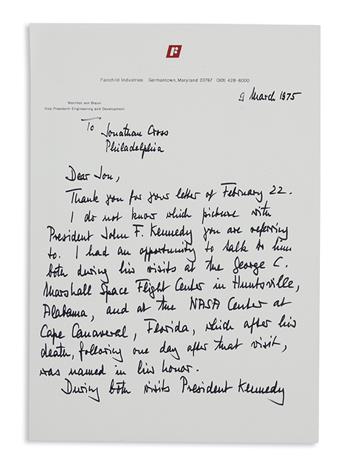 F
Fairchild Industries Germantown, Maryland 20767 (301) 428-6000
Wernher von Braun
Vice President-Engineering and Development
9 March 1975
To Jonathan Cross
Philadelphia
Dear Jon,
Thank you for your letter of February 22.
I do not know which picture with
President John F. Kennedy you are referring
to. I had an opportunity to talk to him
both during his visits at the George C.
Marshall Space Flight Center in Huntsville,
Alabama, and at the NASA Center at
Cape Canaveral, Florida, which after his
death, following one day after that visit,
was named in his honor.
During both visits President Kennedy